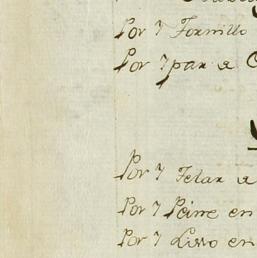 Por 7 Tornillo
Por 7 par a
Por 7 Telar a
Por 7 Peine en
Por 7 Liso en